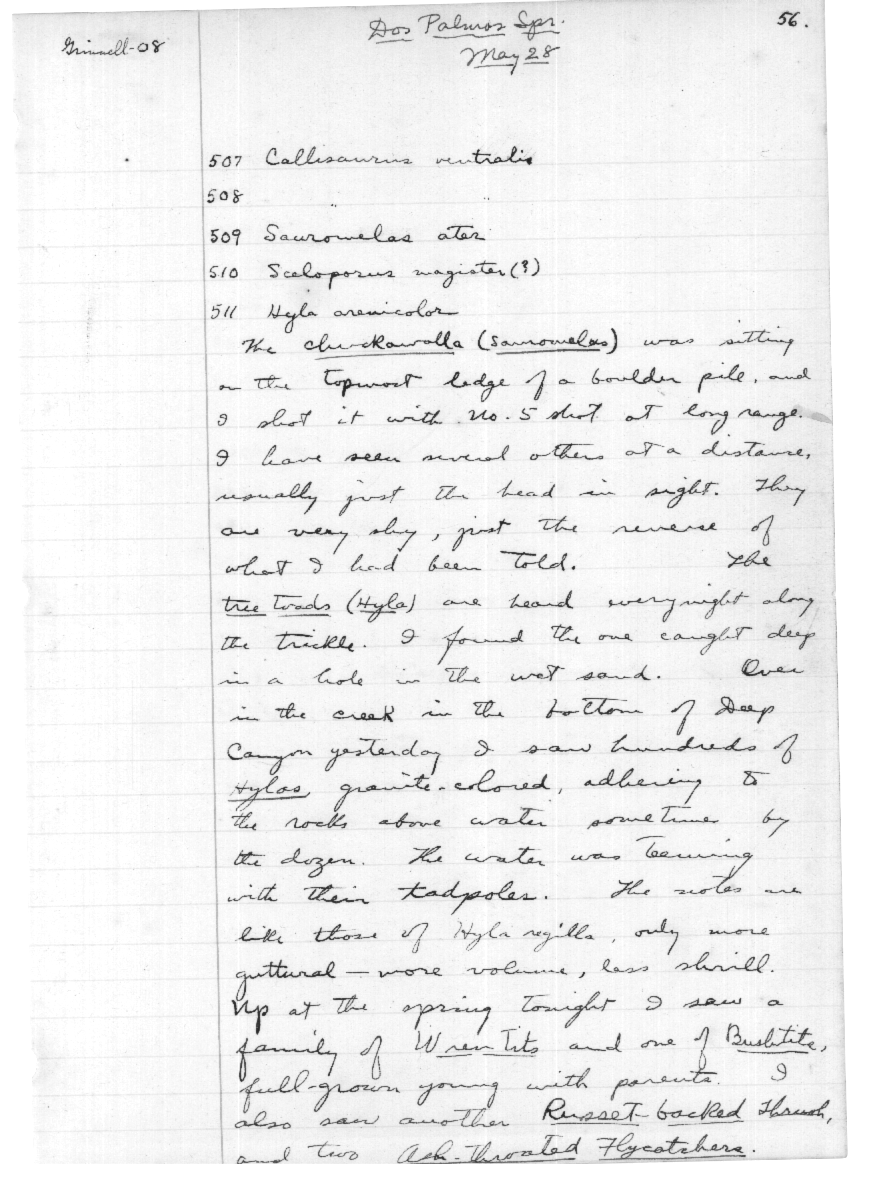 Dos Palmos Spr.
56.
Grinnell-08
May 28
507 Callisaurus ventralis
508 " "
509 Sauromelas ater
510 Sceloporus magister (?)
511 Hyla arenicolor
The chuckawalla (Sauromelas) was sitting
on the topmost ledge of a boulder pile, and
I shot it with No. 5 shot at long range.
I have seen several others at a distance,
usually just the head in sight. They
are very shy, just the reverse of
what I had been told. The
tree toads (Hyla) are heard every night along
the trickle. I found the one caught deep
in a hole in the wet sand. Over
in the creek in the bottom of Deep
Canyon yesterday I saw hundreds of
Hylas, granite-colored, adhering to
the rocks above water sometimes by
the dozen. The water was teeming
with their tadpoles. The notes are
like those of Hyla regilla, only more
guttural – more volume, less shrill.
Up at the spring tonight I saw a
family of Wren Tits and one of Bushtits,
full-grown young with parents. I
also saw another Russet-backed Thrush,
and two Ash-throated Flycatchers.